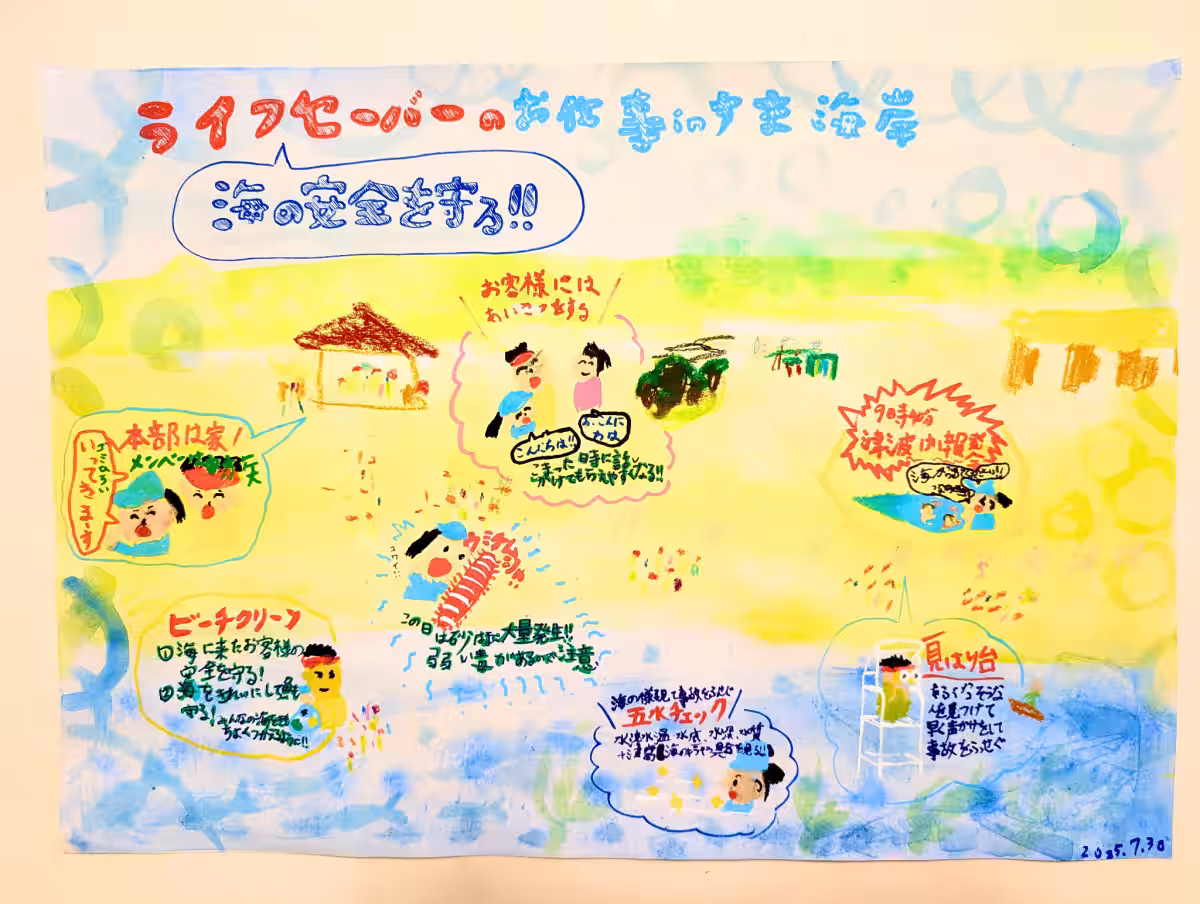 ライフセーバーのお仕事inすま海岸
海の安全を守る!!
お客様には
あいさつをする
こんにちは!!
こんに
ちは
こまった時に話し
かけてもらえやすくなる!!
本部は家!
メンバー
ゴミひろい
いってきまーす
9時半
津波注意報発
ウミケムシ
コワイ
この日
大量発生!!
弱い毒があるので注意
ビーチクリーン
海に来たお客様の
安全を守る!
海をきれいにして
守る!
みんなの海をき
もちよくつかえるように!!
海の様子見て事故をふせぐ
五水チェック
水流、水温、水底、水深、水質
見はり台
なりそうな
人を見つけて
早く声かけをして
事故をふせぐ
2025.7.30